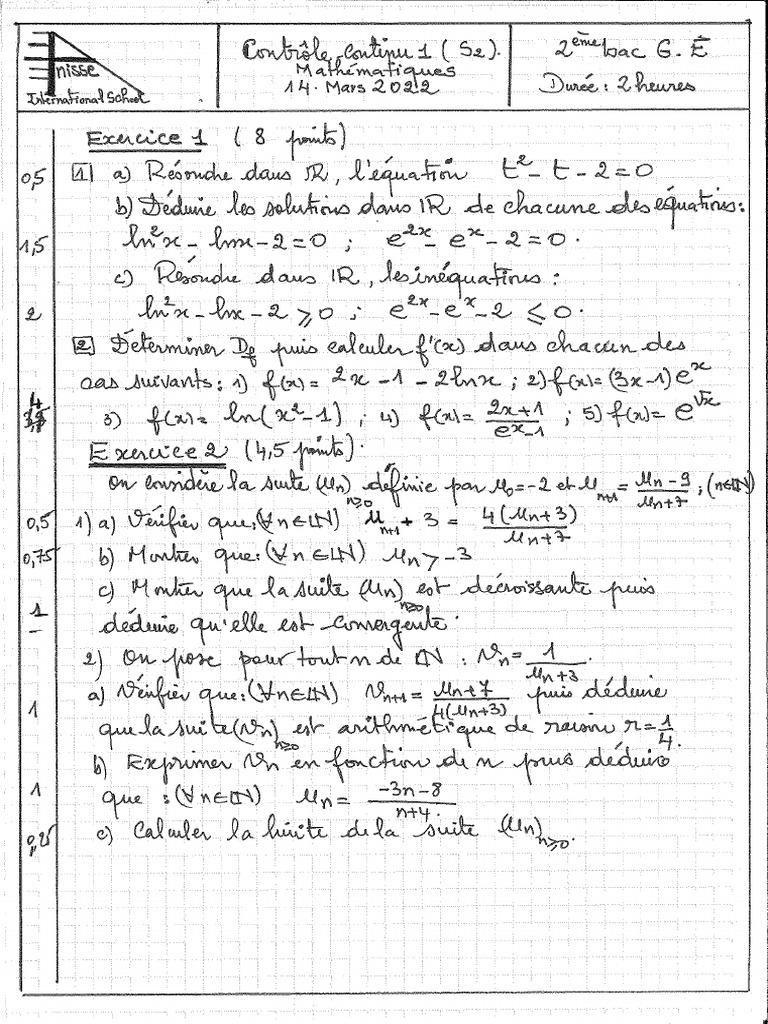 Anisse
International School
Contrôle continu 1 (S2).
Mathématiques
14. Mars 2022
2ème bac G. É
Durée : 2 heures
Exercice 1 ( 8 points)
0,5 1 a) Résoudre dans IR, l'équation t² - t - 2 = 0
b) Déduire les solutions dans IR de chacune des équations:
1,5 ln²x - lnx - 2 = 0 ; e^{2x} - e^x - 2 = 0.
c) Résoudre dans IR, les inéquations :
2 ln²x - lnx - 2 ⩾ 0 ; e^{2x} - e^x - 2 ⩽ 0.
2 Déterminer Df puis calculer f'(x) dans chacun des
cas suivants : 1) f(x) = 2x - 1 - 2lnx ; 2) f(x) = (3x-1)e^x
4 3) f(x) = ln(x²-1) ; 4) f(x) = (2x+1)/(e^x-1) ; 5) f(x) = e^{√x}
Exercice 2 (4,5 points).
On considère la suite (Un)n⩾0 définie par U0=-2 et Un+1 = (Un-9)/(Un+7) ; (n∈IN)
0,5 1) a) Vérifier que : (∀n∈IN) Un+1 + 3 = 4(Un+3)/(Un+7)
0,75 b) Montrer que : (∀n∈IN) Un > -3
c) Montrer que la suite (Un)n⩾0 est décroissante puis
1 déduire qu'elle est convergente.
2) On pose pour tout n de IN : Vn = 1/(Un+3).
a) Vérifier que : (∀n∈IN) Vn+1 = (Un+7)/(4(Un+3)) puis déduire
1 que la suite (Vn)n⩾0 est arithmétique de raison r = 1/4.
b) Exprimer Vn en fonction de n puis déduire
1 que : (∀n∈IN) Un = (-3n-8)/(n+4).
c) Calculer la limite de la suite (Un)n⩾0.